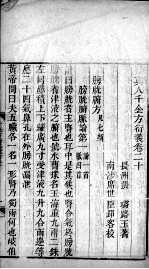 千金方衍義卷二十
長洲張璐路玉著
南沙席世臣郢客校
膀胱腑方
膀胱腑脈論第一
膀胱者主腎也耳中是其候也腎合氣於膀胱膀胱
者津液之腑也號水曹掾名玉海重九兩二銖
左迴疊積上下縱廣九寸受津液九升九合兩邊等
應二十四氣鼻空在外膀胱漏泄
黃帝問曰夫五臟各一名一形腎乃獨兩何也岐伯